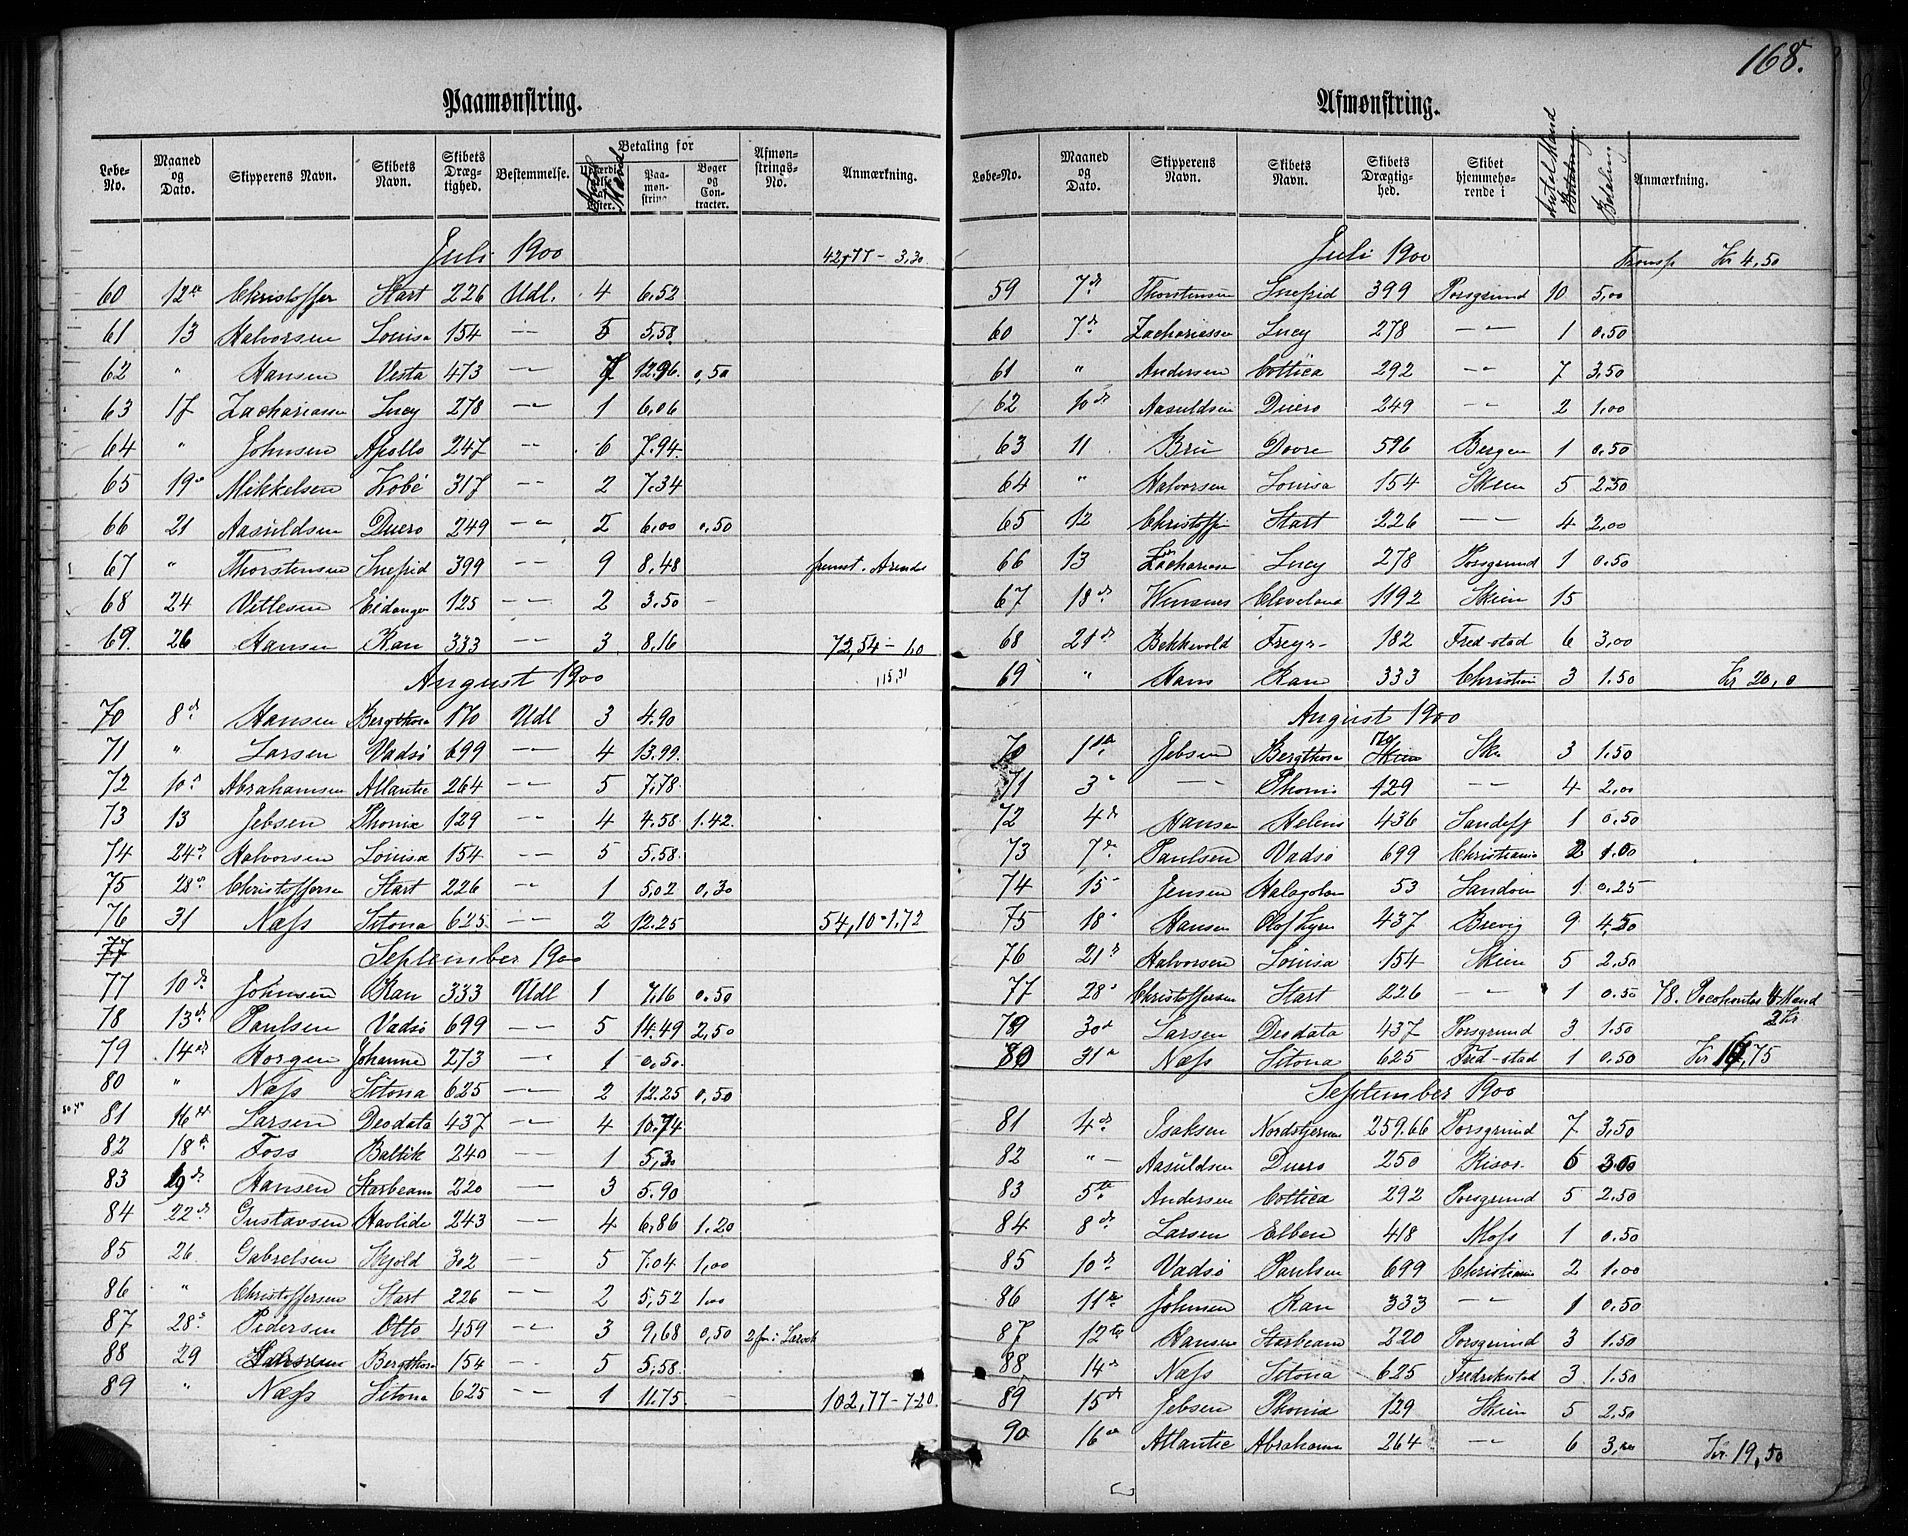 168.
Paamønstring.
Løbe-No. | Maaned og Dato. | Skipperens Navn. | Skibets Navn. | Skibets Drægtighed. | Bestemmelse. | Betaling for | Antal Mand | Paamønstring | Bøger og Contracter. | Afmønstrings-No. | Anmærkning.
Juli 1900 42,77 - 3,30
60 12te Christoffer Start 226 Udl. 4 6,52
61 13 Halvorsen Louisa 154 — 5 5,58
62 " Hansen Vesta 473 — 7 12.96. 0,50
63 17 Zachariassen Lucy 278 — 1 6,06
64 " Johnsen Apollo 247 — 6 7.94
65 19 Mikkelsen Kobé 317 — 2 7.34
66 21 Aasuldsen Duero 249 — 2 6,00 0,50
67 " Thorstensen Snefrid 399 — 9 8,48
68 24 Vetlesen Eidanger 125 — 2 3,50 —
69 26 Hansen Ran 333 — 3 8,16 72,54 - 10
115,31
August 1900
70 8de Hansen Bergthora 170 Udl 3 4.90
71 " Larsen Vadsø 699 — 4 13.99
72 10de Abrahamsen Atlantic 264 — 5 7,78
73 13 Jebsen Phonix 129 — 4 4.58 1.42
74 24de Halvorsen Louisa 154 — 5 5.58
75 28de Christoffersen Start 226 — 1 5,02 0,30
76 31 Næss Sitona 625 — 2 12.25 54,10 - 1.72
77
September 1900
77 10de Johnsen Ran 333 Udl 1 7,16 0,50
78 13de Paulsen Vadsø 699 — 5 14.49 2,50
79 14de Horgen Johanne 273 — 1 0,50
80 " Næss Sitona 625 — 2 12.25 0,50
81 16de Larsen Deodata 437 — 4 10.74
82 18de Foss Baltik 240 — 1 5,30
83 19de Hansen Starbeam 220 — 3 5.90
84 22de Gustavsen Havlide 243 — 4 6,86 1.20
85 26 Gabrelsen Skjold 302 — 5 7.04 1,00
86 " Christoffersen Start 226 — 2 5,52 1,00
87 28de Pedersen Otto 459 — 3 9,68 0,50
88 29 Bergthora 154 — 5 5.58
89 " Næss Sitona 625 — 1 11.75 — 102,77 - 7.20
Afmønstring.
Løbe-No. | Maaned og Dato. | Skipperens Navn. | Skibets Navn. | Skibets Drægtighed. | Skibet hjemmehørende i | Antal Mand | Betaling | Anmærkning.
Juli 1900 Transp Kr 4,50
59 7de Thorstensen Snefrid 399 Porsgrund 10 5,00
60 7de Zachariassen Lucy 278 — 1 0.50
61 " Andersen Cottica 292 — 7 3,50
62 10de Aasuldsen Duero 249 — 2 1.00
63 11 Bru Dovre 596 Bergen 1 0.50
64 " Halvorsen Louisa 154 Skien 5 2.50
65 12 Christoffer Start 226 — 4 2,00
66 13 Zachariassen Lucy 278 Porsgrund 1 0.50
67 18de Cleveland 1192 Skien 15
68 21de Bekkevold Freyr 182 Fred-stad 6 3,00
69 " Hans Ran 333 Christian 3 1.50 Kr 20,0
August 1900
70 1ste Jebsen Bergthora 170 Ski 3 1.50
71 3de — Phonix 129 — 4 2,00
72 4de Hansen Helene 436 Sandefj 1 0.50
73 7de Paulsen Vadsø 699 Christiania 2 1.00
74 15 Jensen 53 1 0.25
75 18 Hansen Olof Kyrre 437 Brevig 9 4,50
76 21de Halvorsen Louisa 154 Skien 5 2.50
77 28de Christoffersen Start 226 " 1 0.50 78. Pocahontas 4 Mand 2 Kr
79 30te Larsen Deodata 437 Porsgrund 3 1.50
80 31te Næss Sitona 625 Fred-stad 1 0.50
September 1900
81 4de Isaksen Nordstjernen 259.66 Porsgrund 7 3,50
82 " — Aasuldsen Duero 250 Risør 6 3.00
83 5te Andersen Cottica 292 Porsgrund 5 2.50
84 8de Larsen Elben 418 Moss 1 0.50
85 10de Vadsø Paulsen 699 Christiania 2 1.00
86 11te Johnsen Ran 333 — 1 0.50
87 12te Hansen Starbeam 220 Porsgrund 3 1.50
88 14de Næss Sitona 625 Fredrikstad 3 1.50
89 15de Jebsen Phonix 129 Skien 5 2,50
90 16de Atlantic Abrahamsen 264 — 6 3,00 Kr 19,50